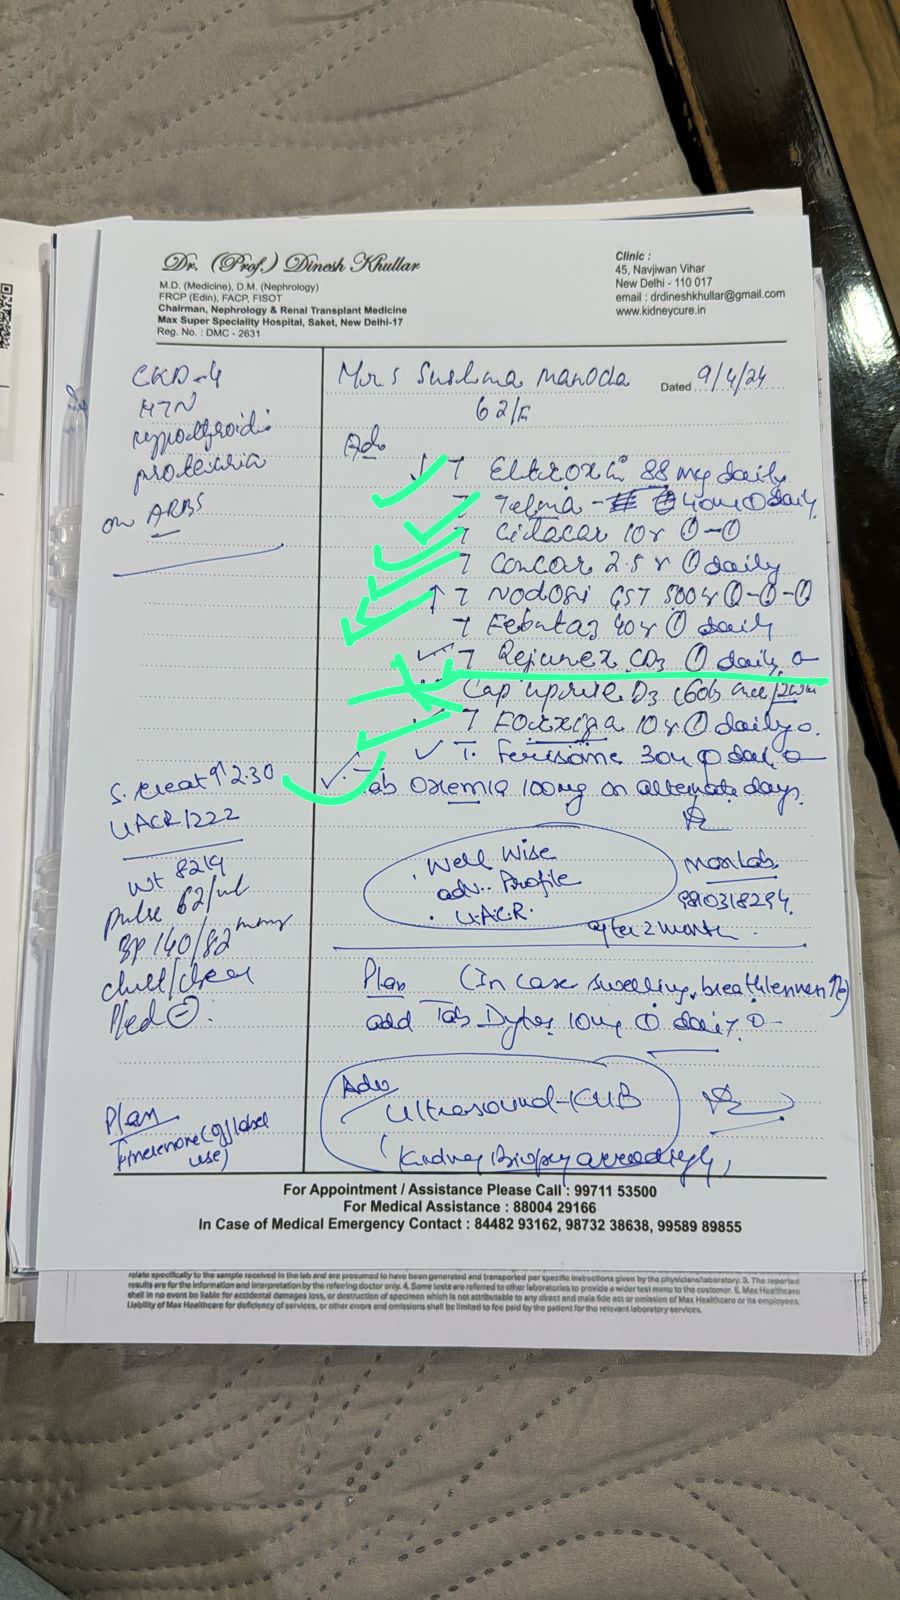 Dr. (Prof.) Dinesh Khullar
M.D. (Medicine), D.M. (Nephrology)
FRCP (Edin), FACP, FISOT
Chairman, Nephrology & Renal Transplant Medicine
Max Super Speciality Hospital, Saket, New Delhi-17
Reg. No. : DMC - 2631
Clinic :
45, Navjiwan Vihar
New Delhi - 110 017
email : drdineshkhullar@gmail.com
www.kidneycure.in
CKD-4
HTN
proteinuria
on ARBS
Mrs Sushma
Dated 9/4/24
62/F
Adv
T Eltroxin 88 mcg daily
T Telma - 40mg ① daily
T Cilacar 10 ①-①
T Concor 2.5 ① daily
↑ T Nodosi GST 500 ①-①-①
T Febutaz 40 ① daily
T Rejunex CD3 ① daily
Cap uprise D3 (60k once/
T Forxiga 10 ① daily
T. Ferisome 30 ① daily
Tab Oxemia 100mg on alternate days
S. creat 2.30
UACR 1222
Wt 82
pulse 62/
BP 140/82 mmHg
chest/clear
Pled ⊖
Well Wise
adv. Profile
UACR
after 2 month
9810318294
Plan (In case swelling, breathlessness ↑)
add Tab Dytor 10mg ① daily
Adv
Ultrasound-KUB
(Kidney Biopsy accordingly)
Plan
Finerenone (off label
use)
For Appointment / Assistance Please Call : 99711 53500
For Medical Assistance : 88004 29166
In Case of Medical Emergency Contact : 84482 93162, 98732 38638, 99589 89855
relate specifically to the sample received in the lab and are presumed to have been generated and transported per specific instructions given by the physicians/laboratory. 3. The reported
results are for the information and interpretation by the referring doctor only. 4. Some tests are referred to other laboratories to provide a wider test menu to the customer. 5. Max Healthcare
shall in no event be liable for accidental damages loss, or destruction of specimen which is not attributable to any direct and mala fide act or omission of Max Healthcare or its employees.
Liability of Max Healthcare for deficiency of services, or other errors and omissions shall be limited to fee paid by the patient for the relevant laboratory services.